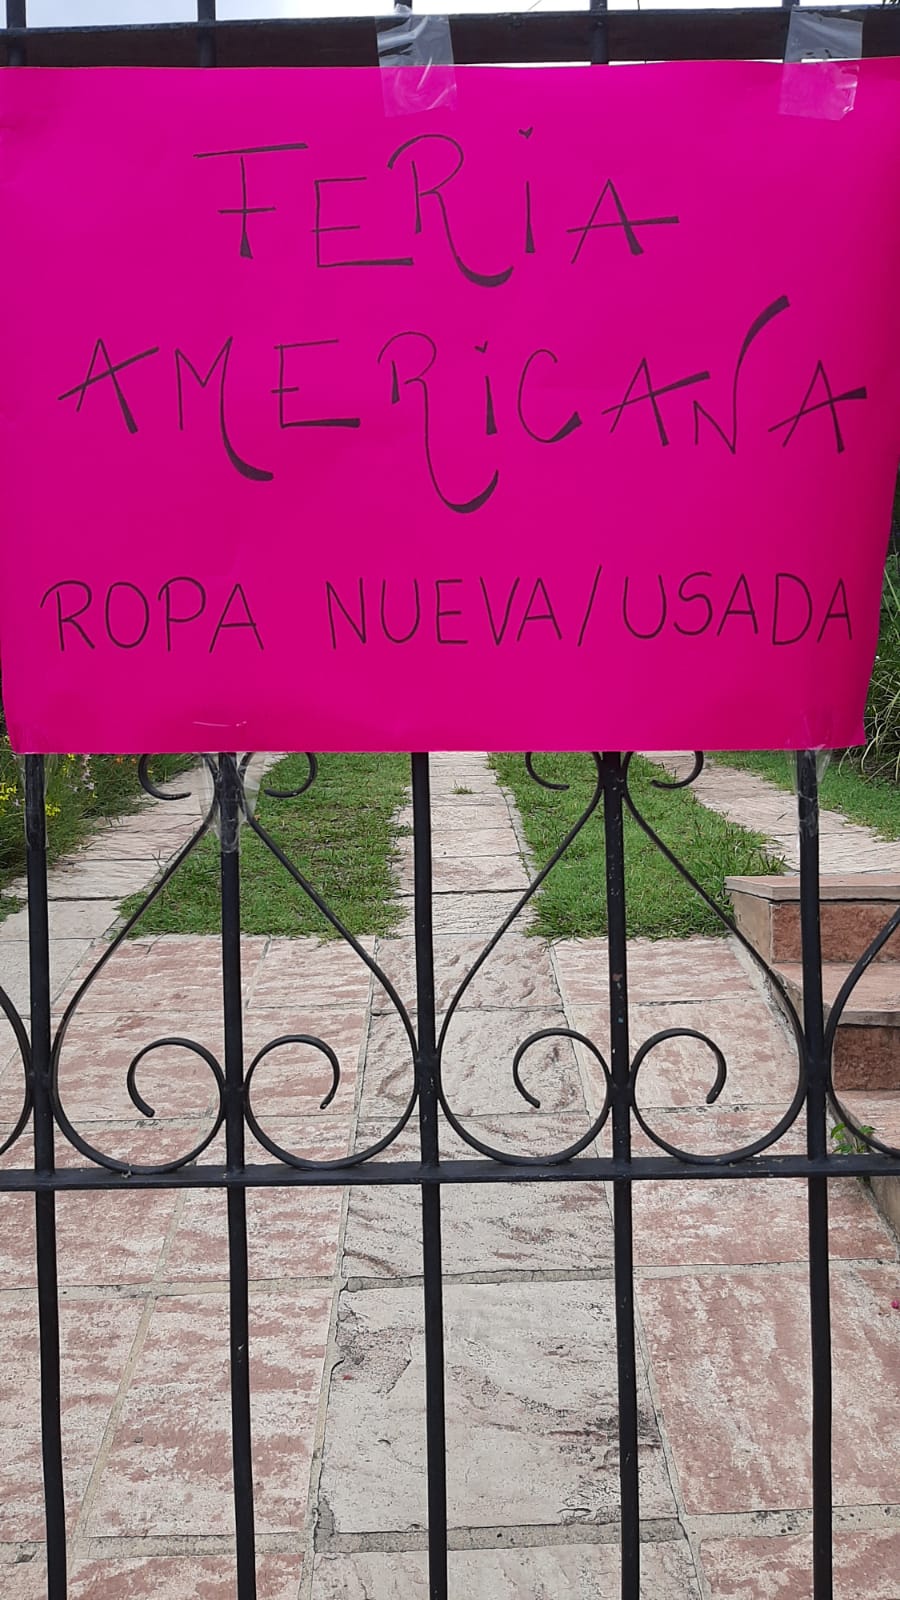 FERIA
AMERICANA
ROPA NUEVA/USADA